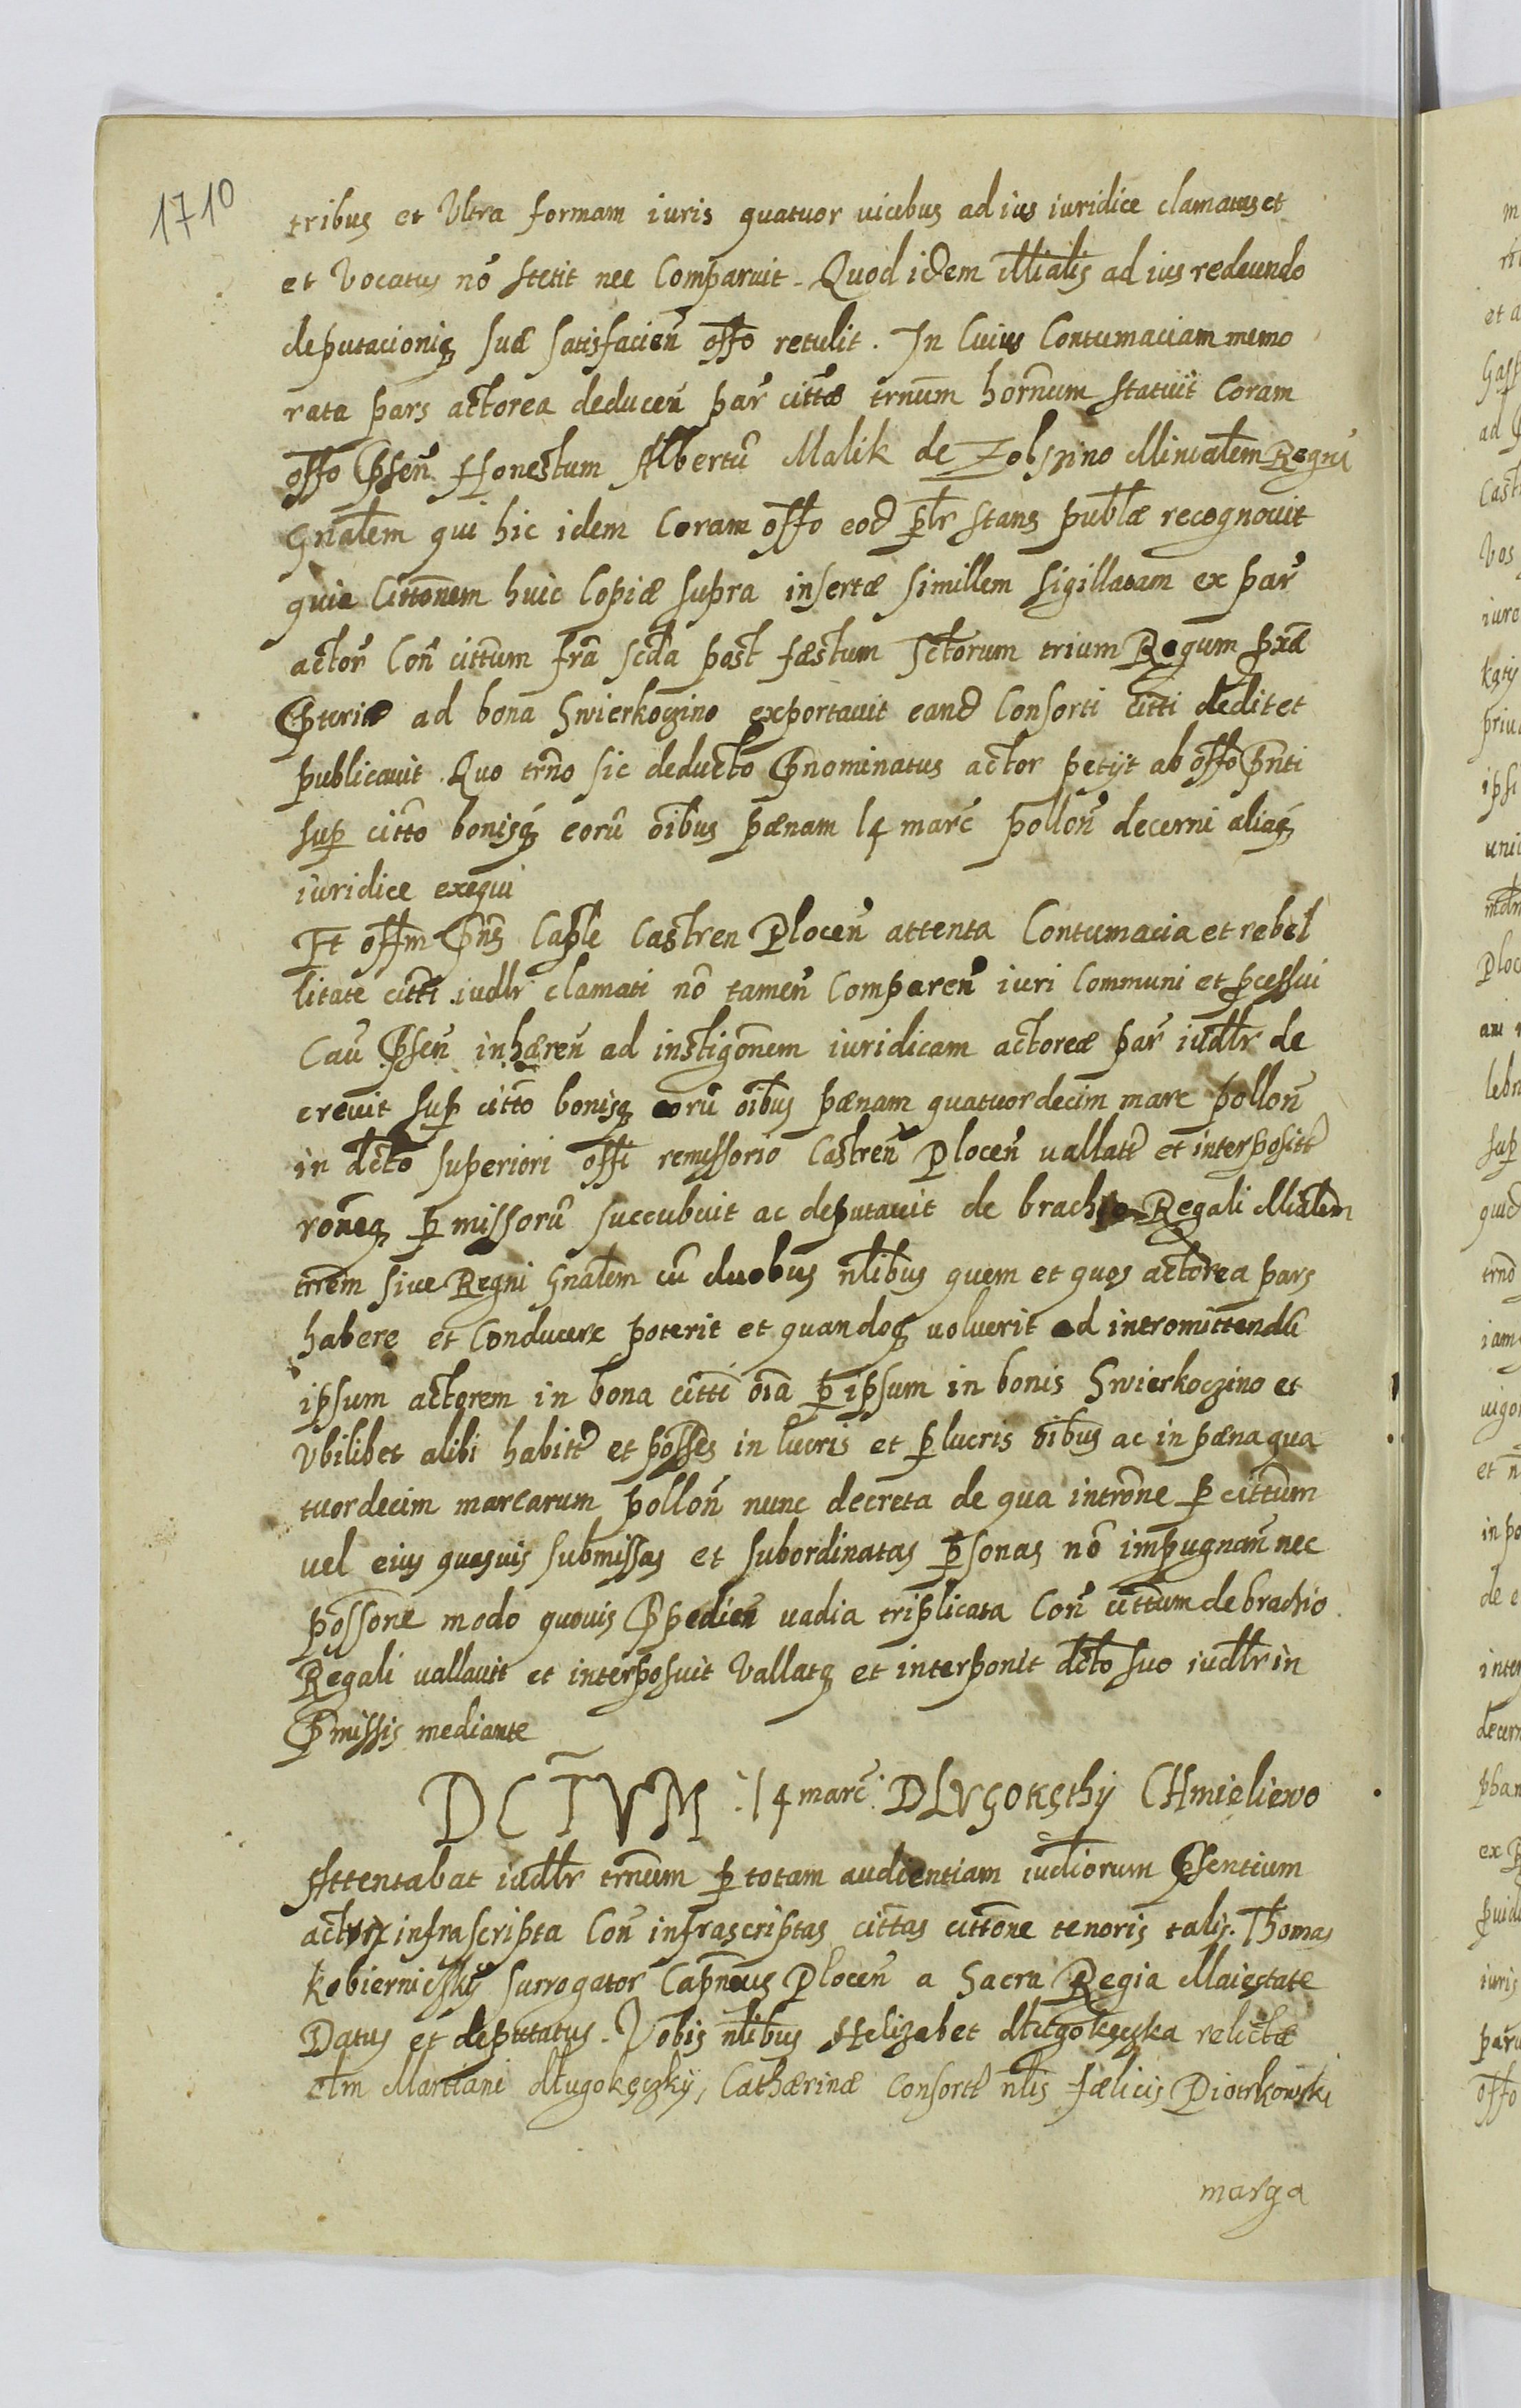 1710
tribus et Vltra formam iuris quatuor uicibus ad ius iuridice clamatus et
et Vocatus nō stetit nec Comparuit. Quod idem Mlialis ad ius redeundo
deputacioniq suæ satisfacien̄ offo retulit. In Cuius Contumaciam memo
rata pars actorea deducen̄ par̄ cittæ trnum hornum statuit Coram
offo Pseñ Honestum Albertū Malik de Zobszino Minialem Regni
Gnalem qui hic idem Coram offo eod plr stans publæ recognouit
quia Cittonem huic Copiæ supra insertæ simillem sigillatam ex par̄
actor̄ Con̄ cittum fra scda post fæstum Sctorum trium Regum pxæ
Pteriæ ad bona Swierkoczino exportauit eand Consorti citti dedit et
publicauit. Quo trno sic deducto Pnominatus actor petijt ab offo Pnti
sup citto bonisq eorū oibus pænam 14 marc pollon̄ decerni aliaq
iuridice exequi
Et offm Pns Caple Castren Plocen̄ attenta Contumacia et rebel
litate citti iudlr clamati nō tamen̄ Comparen̄ iuri Communi et pcessui
Cau Psen̄ inhæren̄ ad instigonem iuridicam actoreæ par̄ iudlr de
creuit sup citto bonisq eorū oibus pænam quatuordecim marc pollon̄
in dcto superiori offi remissorio Castren̄ Plocen̄ uallatt et interpositt
roneq p missorū succubuit ac deputauit de brachio Regali Mlialem
trrem siue Regni Gnalem cū duobus nlibus quem et quos actorea pars
habere et Conducere poterit et quandoq uoluerit ad intromittendū
ipsum actorem in bona citti oia p ipsum in bonis Swierkoczino et
Vbilibet alibi habitt et posses in lucris et p lucris oibus ac in pæna qua
tuordecim marcarum pollon̄ nunc decreta de qua introne p cittum
uel eius quasuis submissas et subordinatas psonas nō impugnan̄ nec
possone modo quouis Ppedien̄ uadia triplicata Con̄ cittum de brachio
Regali uallauit et interposuit Vallatq et interponit dcto suo iudlr in
Pmissis mediante
DCTVM 14 marc. DLVGOKĘthij CHmieliewo
Attentabat iudlr trnum p totam audientiam iudiorum Psentium
actrix infrascripta Con̄ infrascriptas cittas cittone tenoris talis. Thomas
Kobierniczkij surrogator Capneus Plocen̄ a Sacra Regia Maiestate
Datus et deputatus. Vobis nlibus Helizabet dlugokęczka relictæ
olm Martiani dlugokęczkij, Catharinæ Consortt nlis fælicis Piotrkowski
marga